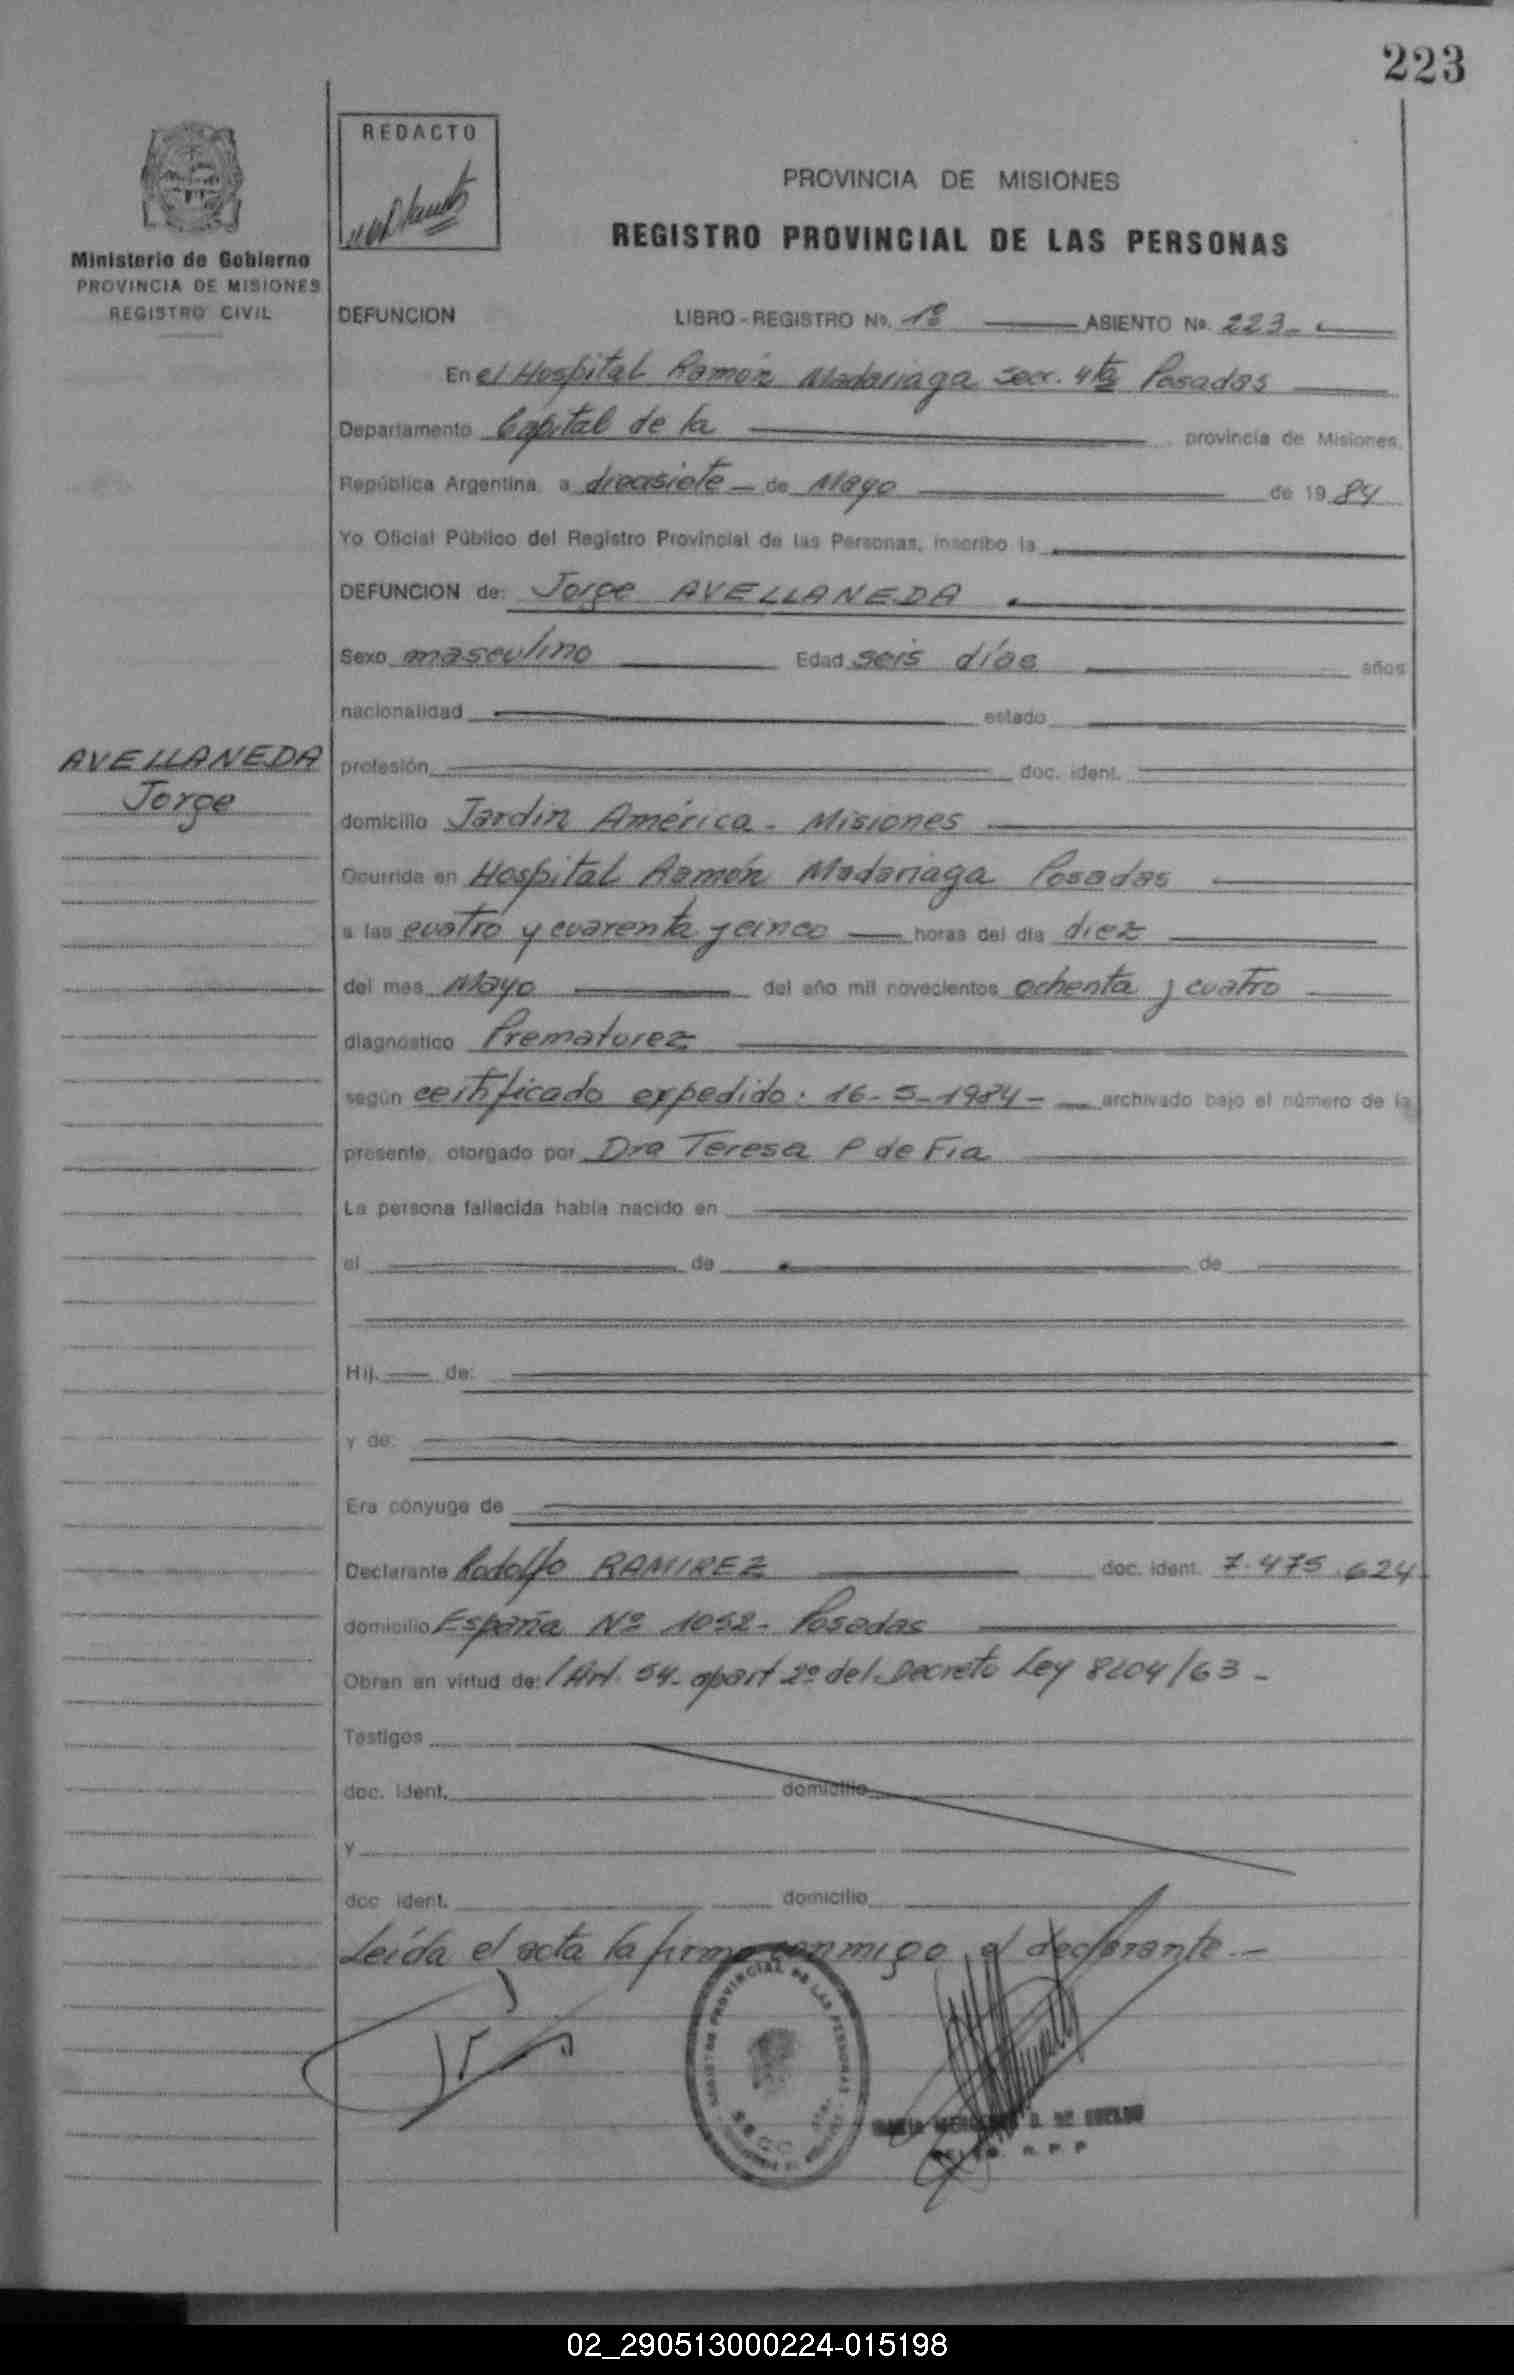 223
REDACTO
PROVINCIA DE MISIONES
REGISTRO PROVINCIAL DE LAS PERSONAS
Ministerio de Gobierno
PROVINCIA DE MISIONES
REGISTRO CIVIL
DEFUNCION LIBRO - REGISTRO Nº. 1º ASIENTO Nº. 223
En el Hospital Ramón Madariaga Secc. 4ta Posadas
Departamento Capital de la provincia de Misiones,
República Argentina, a diecisiete de Mayo de 1984
Yo Oficial Público del Registro Provincial de las Personas, inscribo la
DEFUNCION de: Jorge AVELLANEDA
Sexo masculino Edad seis días años
nacionalidad estado
AVELLANEDA
Jorge
profesión doc. ident.
domicilio Jardin América - Misiones
Ocurrida en Hospital Ramón Madariaga Posadas
a las cuatro y cuarenta y cinco horas del día diez
del mes Mayo del año mil novecientos ochenta y cuatro
diagnóstico Prematurez
según certificado expedido: 16-5-1984- archivado bajo el número de la
presente, otorgado por Dra Teresa P de Fia
La persona fallecida había nacido en
el de de
Hij. de:
y de:
Era cónyuge de
Declarante Rodolfo RAMIREZ doc. ident. 7.475.624
domicilio España Nº 1052- Posadas
Obran en virtud de: / Art. 54- apart 2º del Decreto Ley 8204/63 -
Testigos
doc. ident. domicilio
y
doc ident. domicilio
Leída el acta la firma conmigo el declarante.-
PROVINCIAL DE LAS PERSONAS
R. P. P
02_290513000224-015198